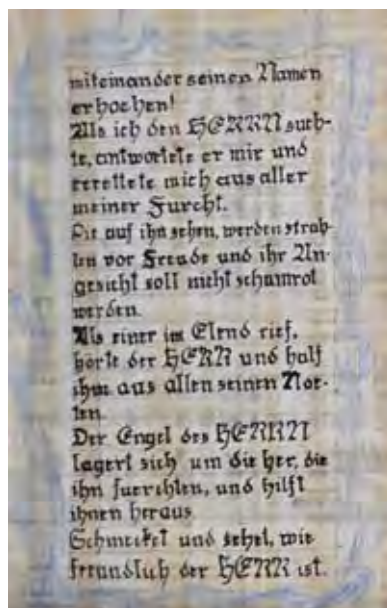 miteinander seinen Namen
erhoehen!
Als ich den HERRN such-
te, antwortete er mir und
errettete mich aus aller
meiner Furcht.
Die auf ihn sehen, werden strah-
len vor Freude und ihr An-
gesicht soll nicht schamrot
werden.
Als einer im Elend rief,
hörte der HERR und half
ihm aus allen seinen Nör-
ten.
Der Engel des HERRN
lagert sich um die her, die
ihn fuerchten, und hilft
ihnen heraus
Schmecket und sehet, wie
freundlich der HERR ist.